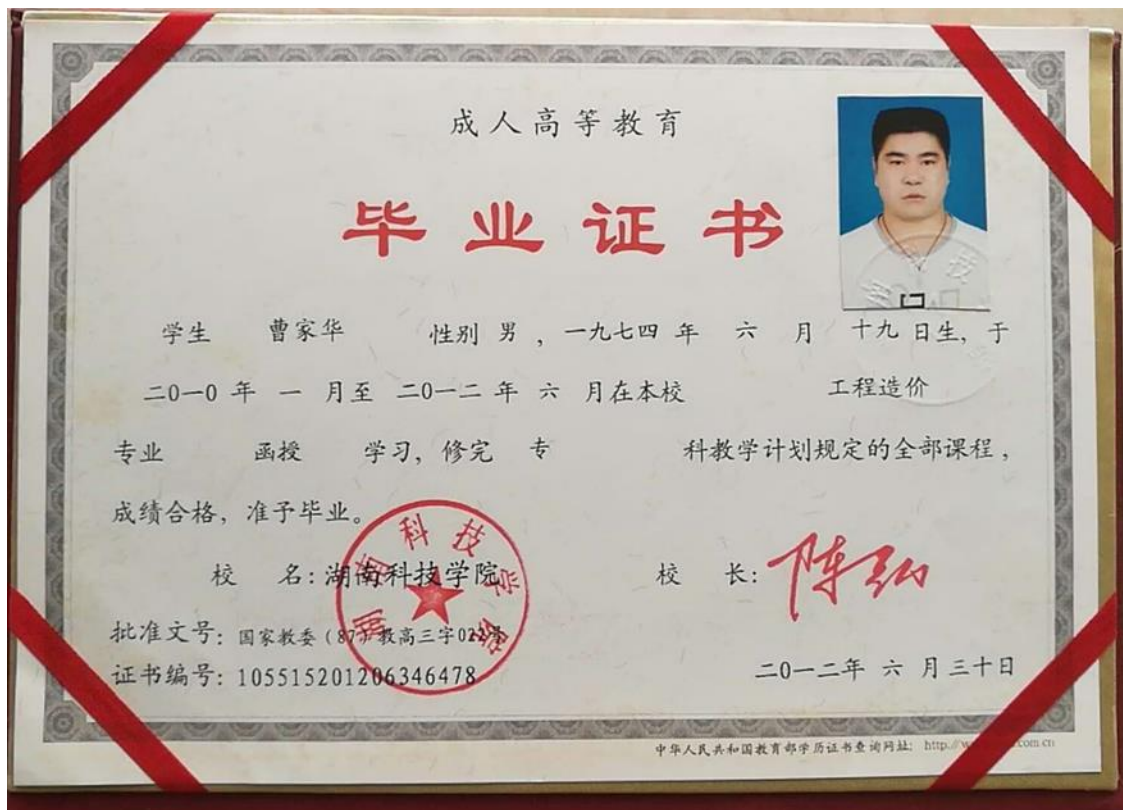 成人高等教育
毕业证书
学生 曹家华 性别 男，一九七四 年 六 月 十九 日生，于
二0一0 年 一 月至 二0一二 年 六 月在本校 工程造价
专业 函授 学习，修完 专 科教学计划规定的全部课程，
成绩合格，准予毕业。
校 名：湖南科技学院 校 长：陈弘
湖南科技学院
批准文号：国家教委（87）教高三字022号
证书编号：105515201206346478
二0一二年 六 月三十日
中华人民共和国教育部学历证书查询网址：http://w com.cn